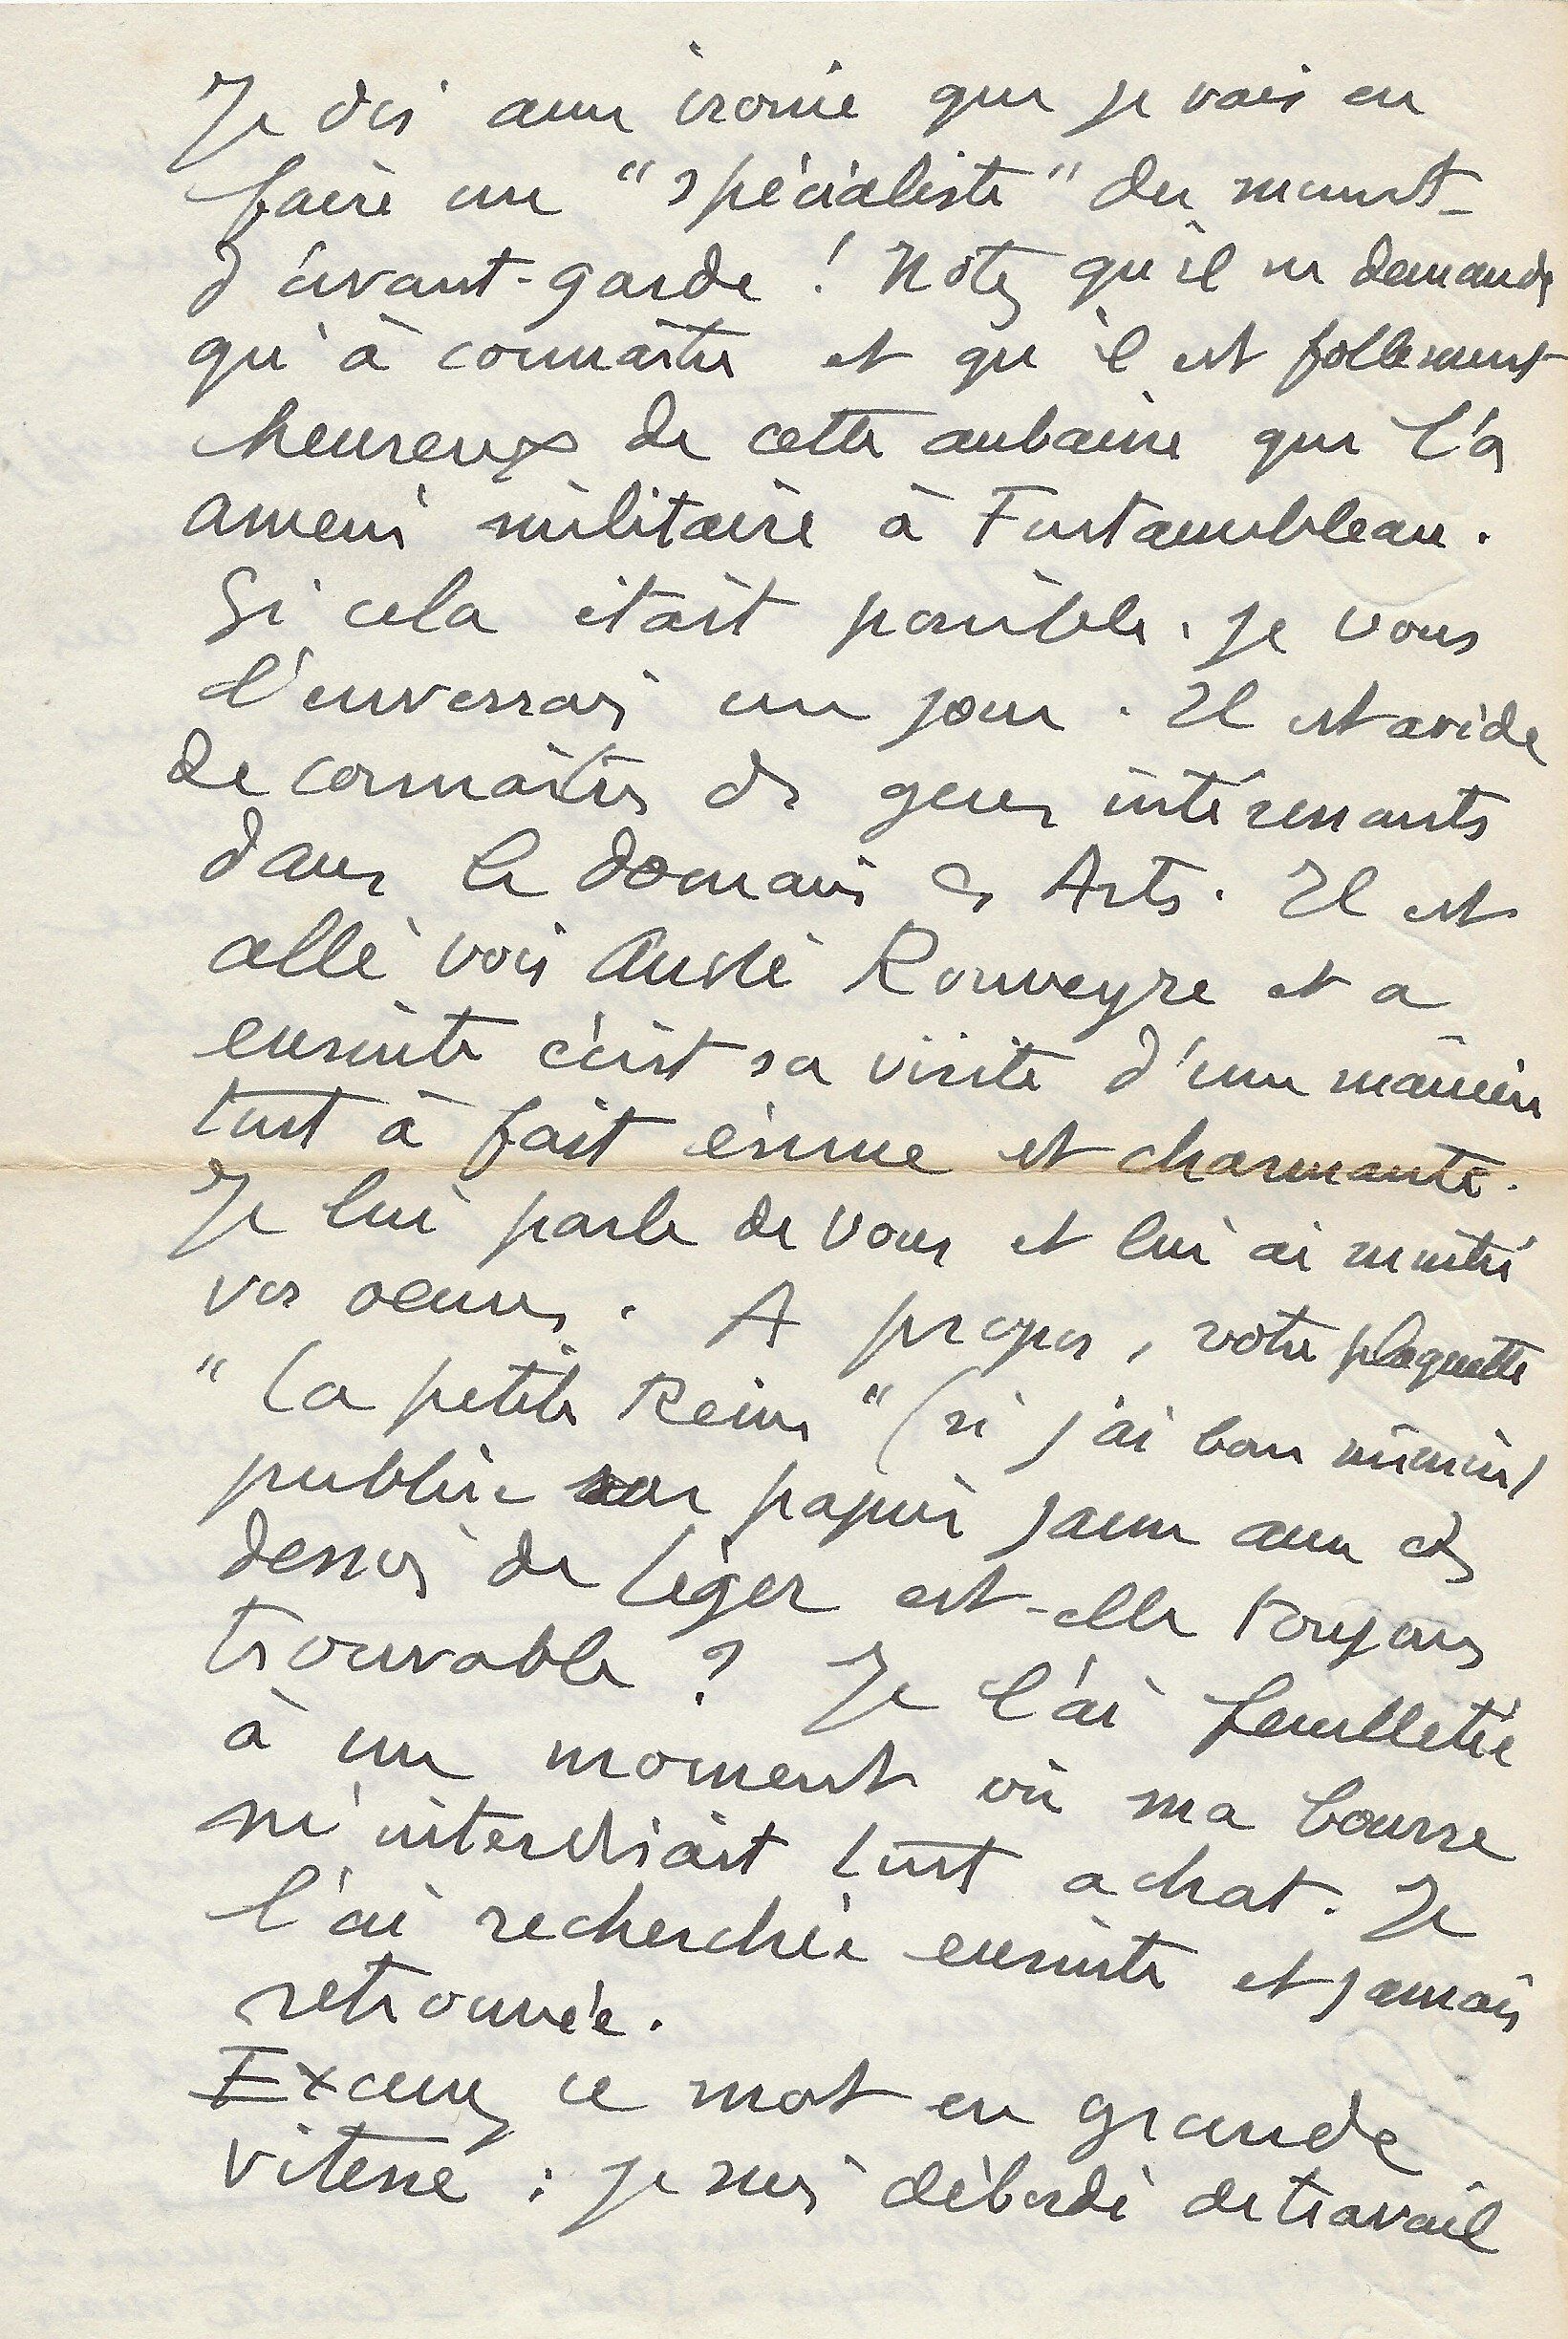 Je dis avec ironie que je vais en
faire un "spécialiste" du mouvt
d'avant-garde ! Notez qu'il ne demande
qu'à connaître et qu'il est follement
heureux de cette aubaine qui l'a
amené militaire à Fontainebleau.
Si cela était possible, je vous
l'enverrai un jour. Il est avide
de connaître des gens intéressants
dans le domaine des Arts. Il est
allé voir André Rouveyre et a
ensuite écrit sa visite d'une manière
tout à fait émue et charmante.
Je lui parle de vous et lui ai montré
vos oeuvres. A propos, votre plaquette
"La petite Reine" (si j'ai bon mémoire)
publiée sur papier jaune avec des
dessins de Léger est-elle toujours
trouvable ? Je l'ai feuilletée
à un moment où ma bourse
m'interdisait tout achat. Je
l'ai recherchée ensuite et jamais
retrouvée.
Excusez ce mot en grande
vitesse : je suis débordé de travail